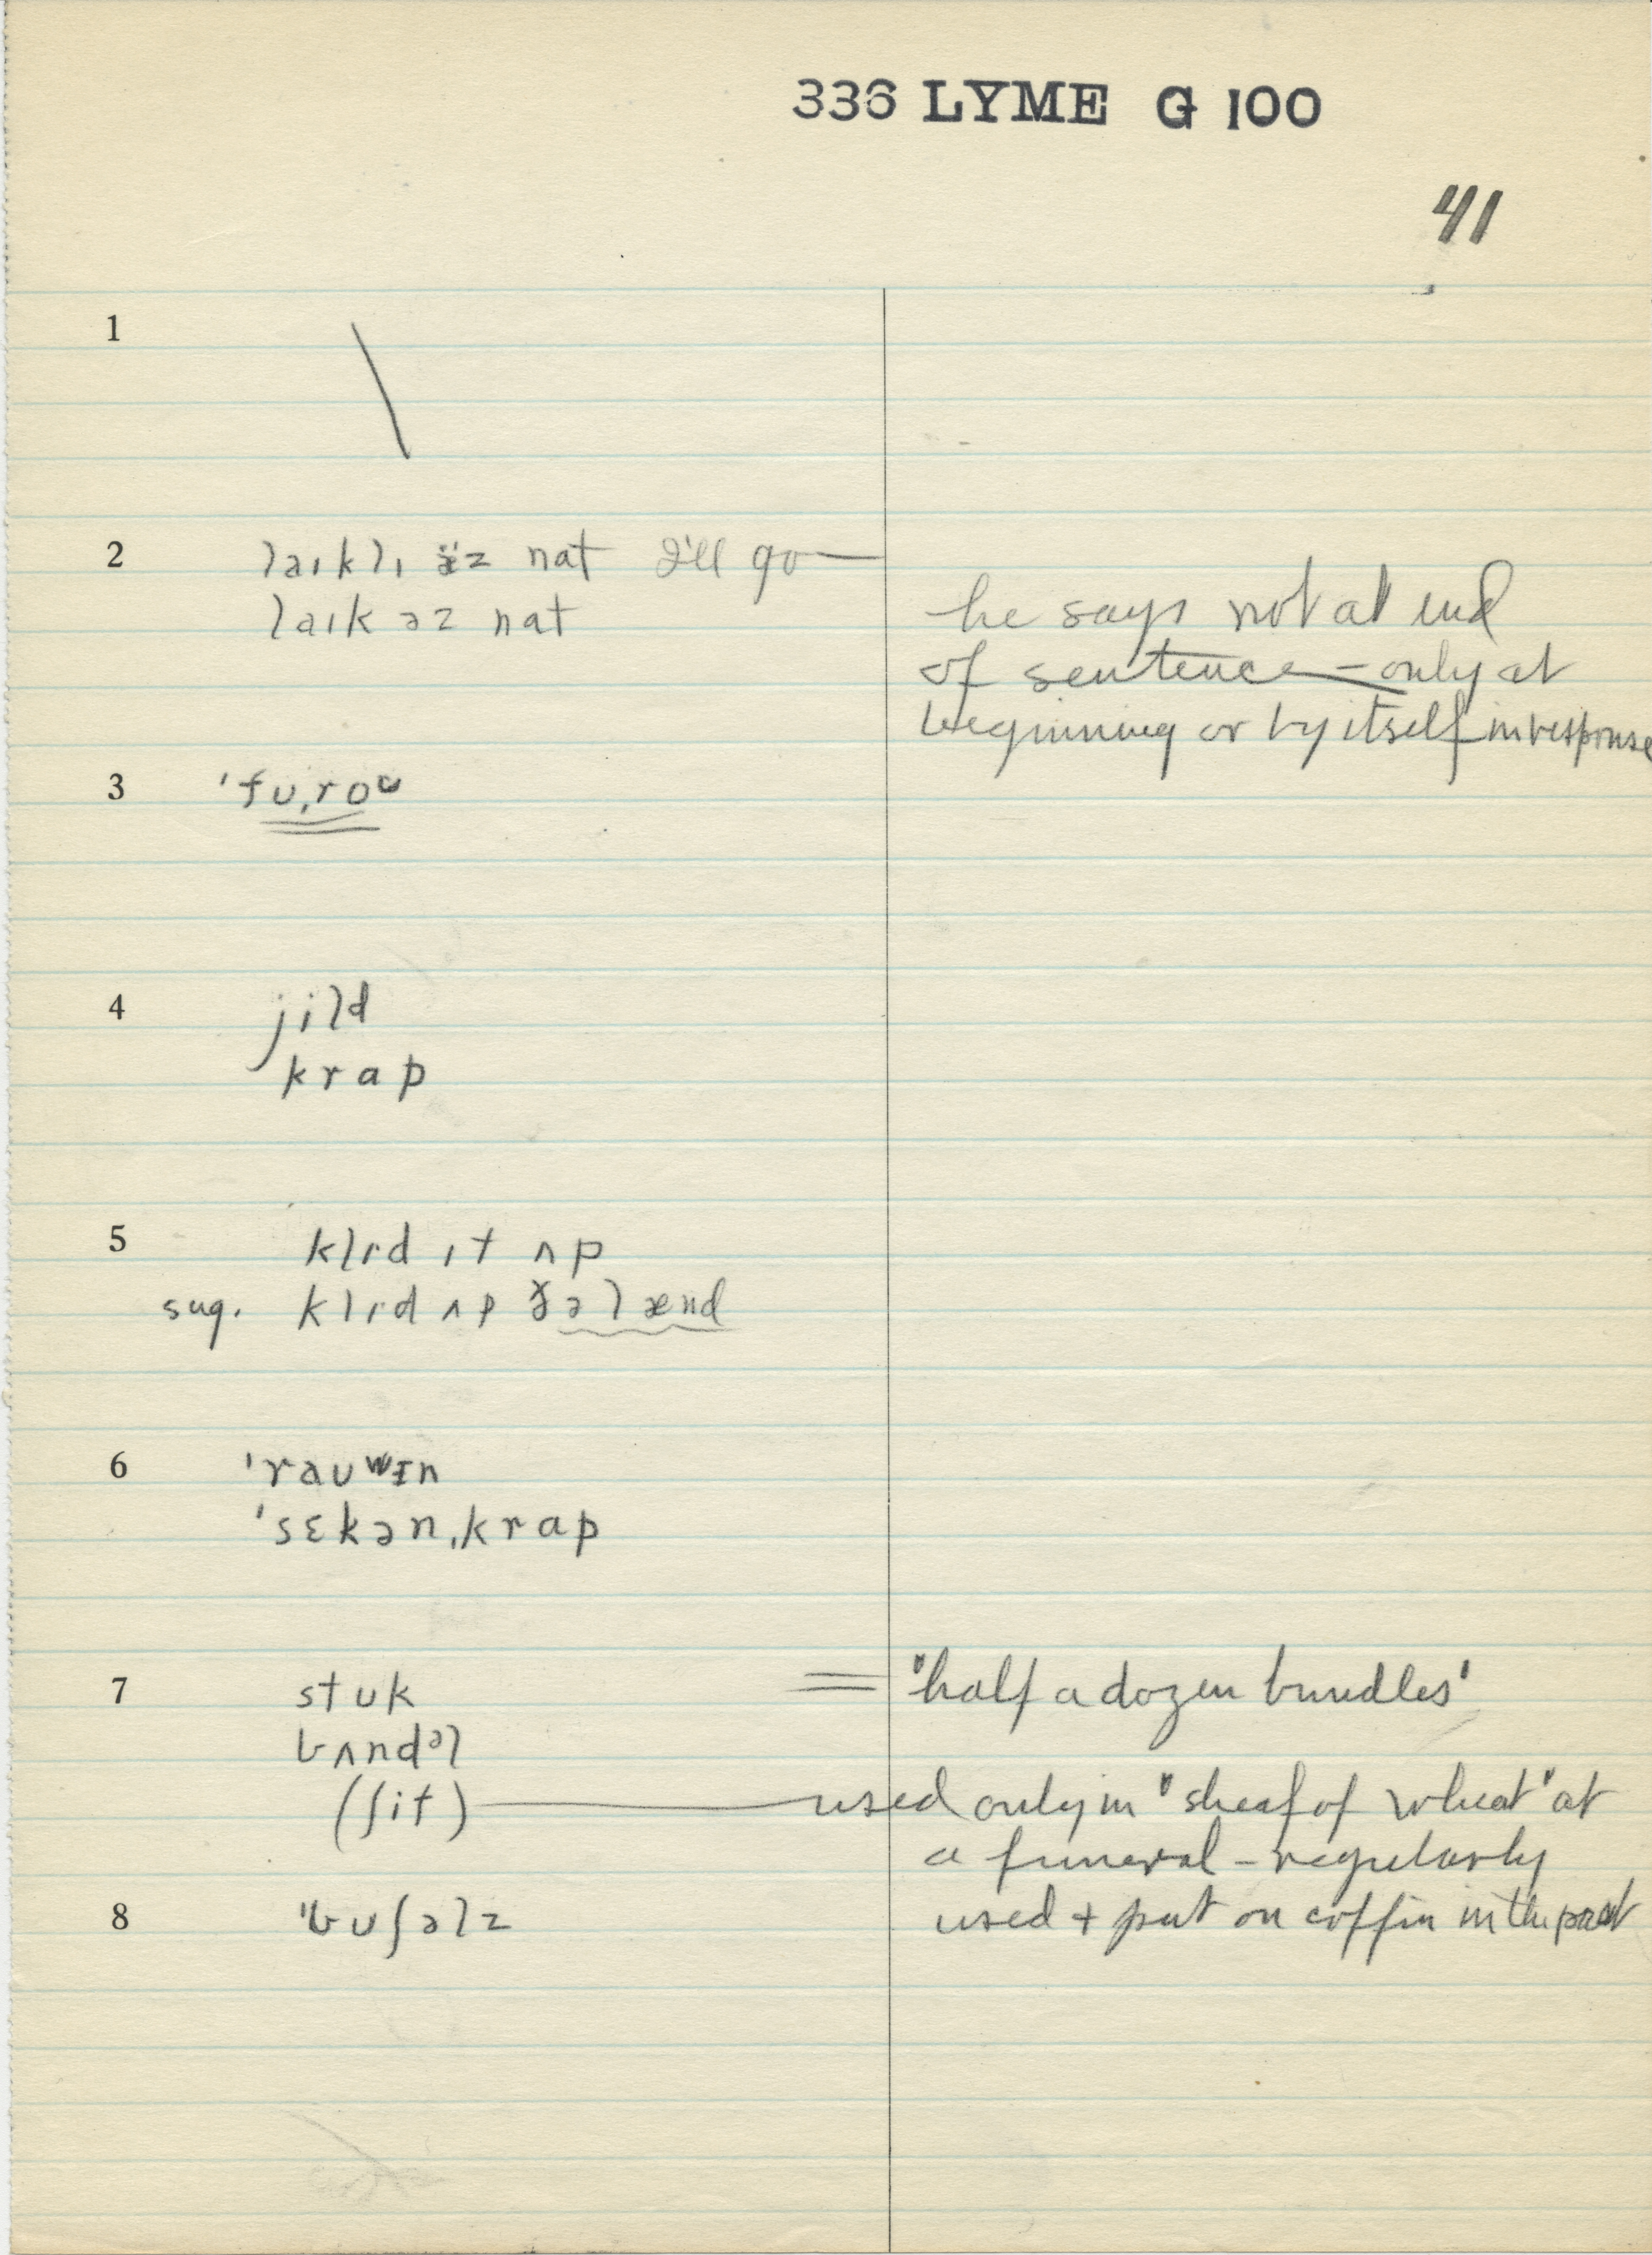 336 LYME G 100
41
1 \
2 laɪklɪ æ̈z nat I'll go —
laɪk əz nat
he says not at end
of sentence – only at
beginning or by itself in response
3 ˈfʊˌroʊ
4 jild
krap
5 klɪd ɪt ʌp
sug. klɪd ʌp ðə lænd
6 ˈraʊʷɪn
ˈsɛkənˌkrap
7 stʊk = "half a dozen bundles"
bʌndᵊl
(ʃif) — used only in "sheaf of wheat" at
a funeral – regularly
used + put on coffin in the past
8 ˈbʊʃəlz